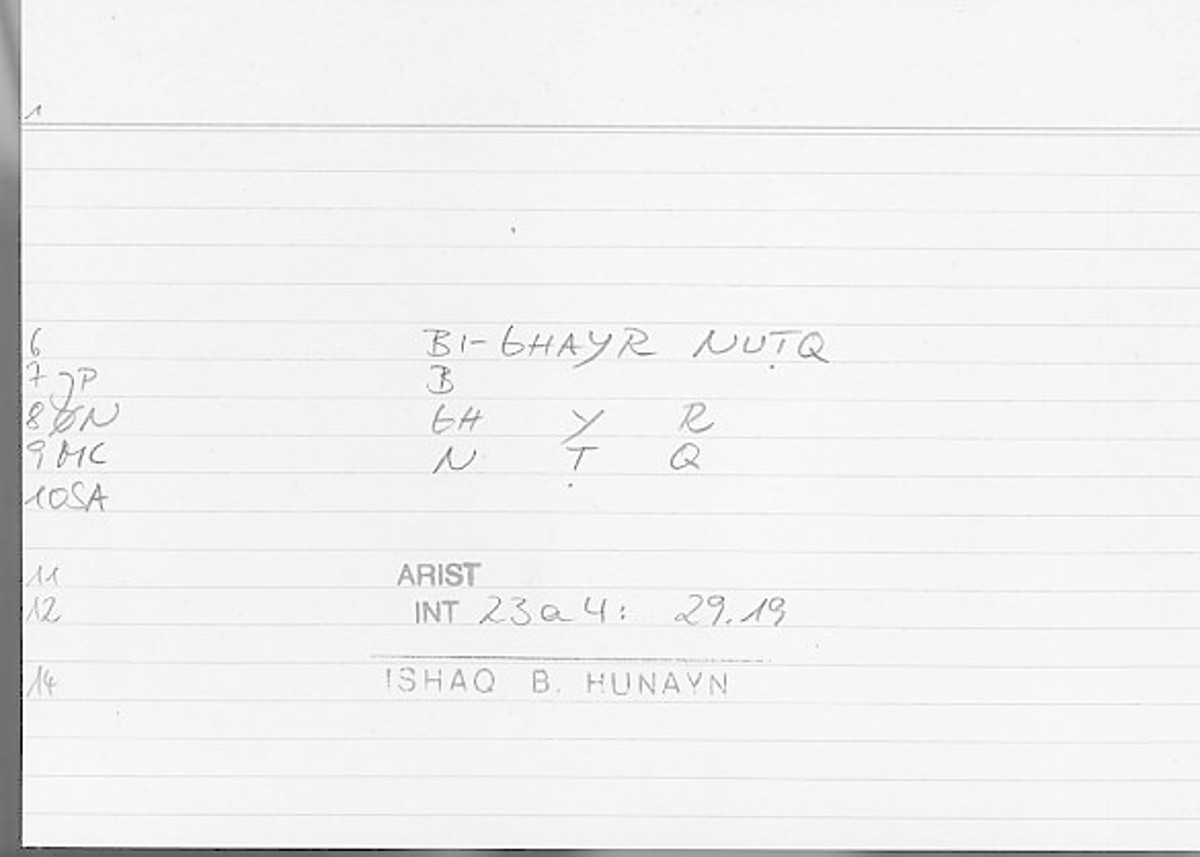 1
6 BI-GHAYR NUṬQ
7 JP B
8 ØN GH Y R
9 MC N Ṭ Q
10SA
11 ARIST
12 INT 23a4: 29.19
14 ISHAQ B. HUNAYN